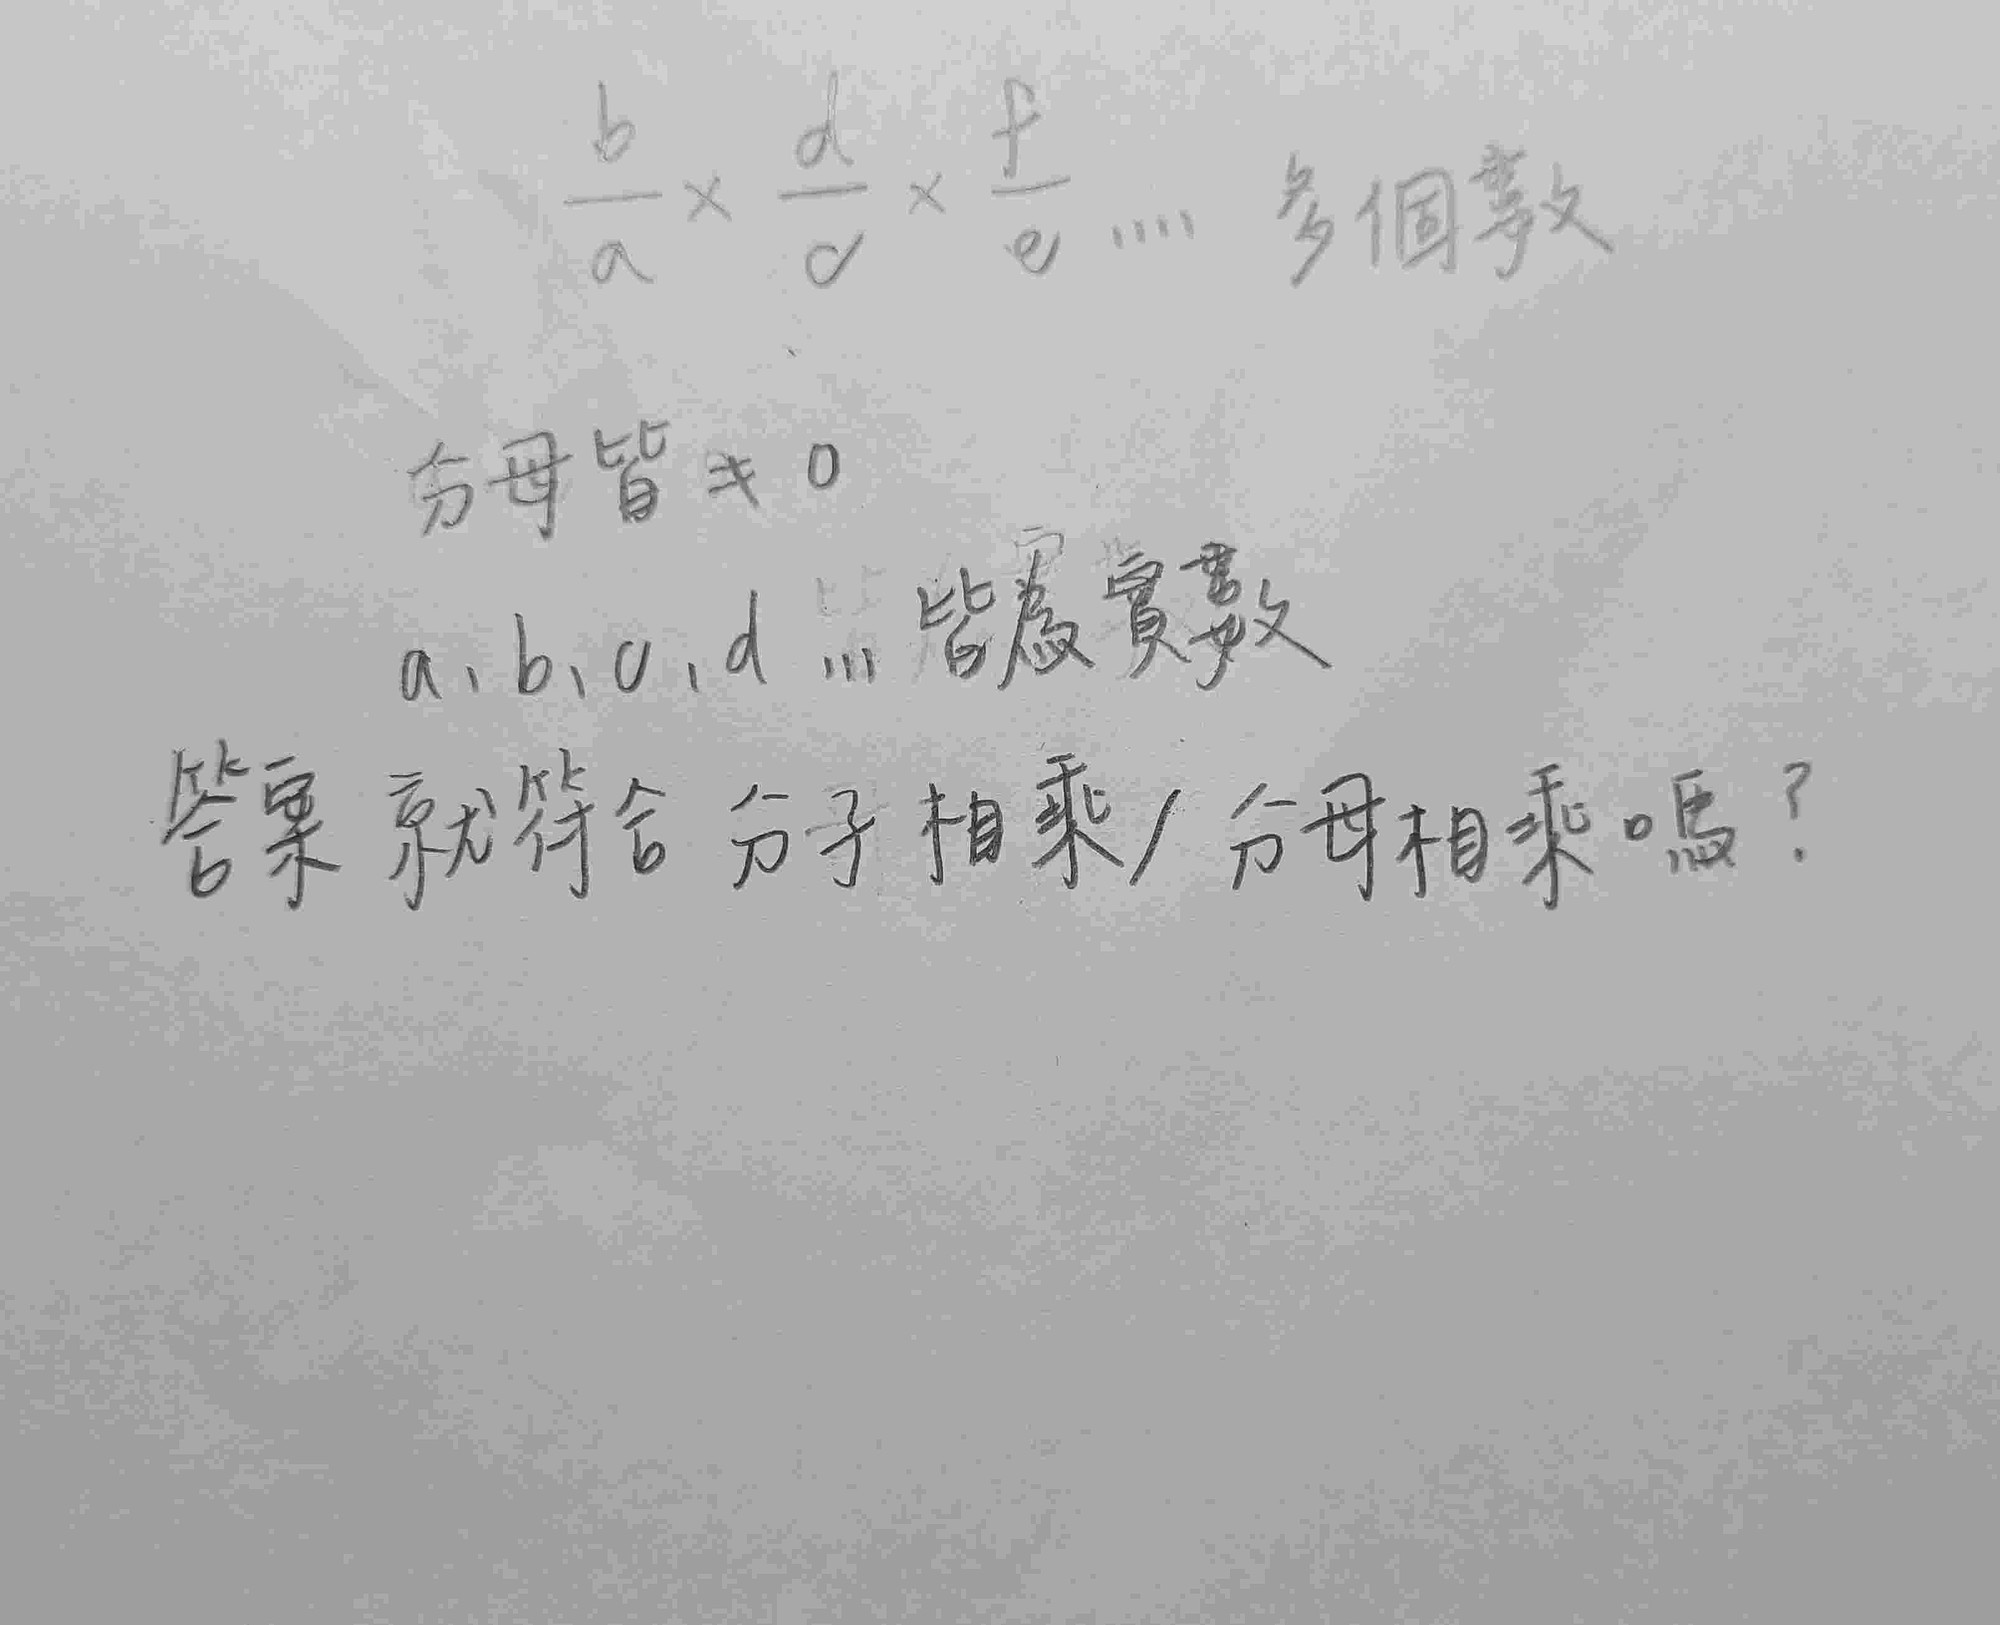 b/a × d/c × f/e .... 多個數
分母皆≠0
a、b、c、d ... 皆為實數
答案就符合分子相乘/分母相乘嗎?